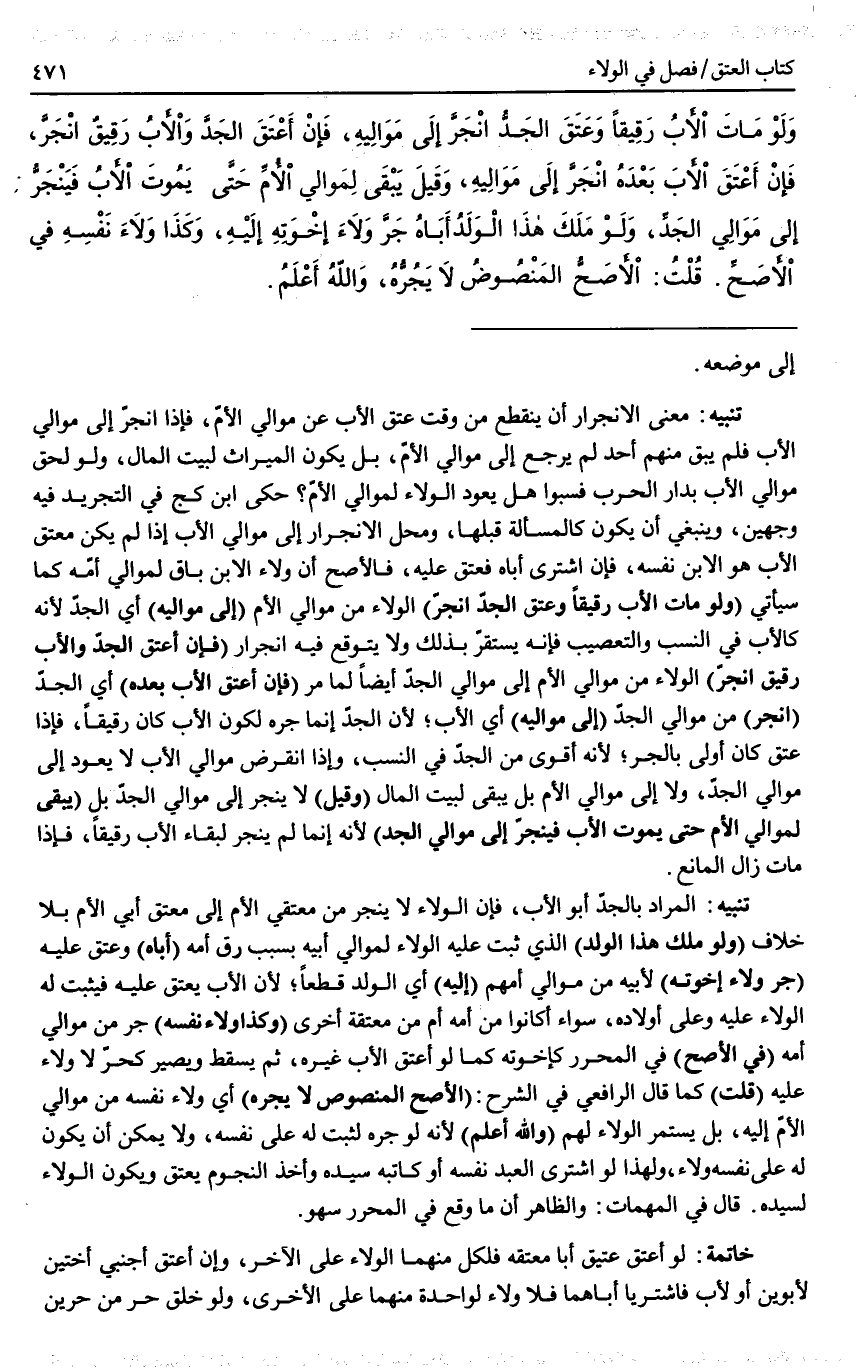 كتاب العتق / فصل في الولاء ٤٧١
وَلَوْ مَاتَ الْأَبُ رَقِيقاً وَعَتَقَ الجَدُّ انْجَرَّ إِلَى مَوَالِيهِ، فَإِنْ أَعْتَقَ الجَدَّ وَالْأَبُ رَقِيقٌ انْجَرَّ،
فَإِنْ أَعْتَقَ الْأَبَ بَعْدَهُ انْجَرَّ إِلَى مَوَالِيهِ، وَقِيلَ يَبْقَى لِمَوالي الْأُمِّ حَتَّى يَمُوتَ الْأَبُ فَيَنْجَرُّ
إلى مَوَالِي الجَدِّ، وَلَوْ مَلَكَ هٰذَا الْوَلَدُ أَبَاهُ جَرَّ وَلَاءَ إِخْوَتِهِ إِلَيْهِ، وَكَذَا وَلَاءَ نَفْسِهِ في
الْأَصَحِّ. قُلْتُ: الْأَصَحُّ المَنْصُوصُ لَا يَجُرُّهُ، وَاللَّهُ أَعْلَمُ.
إلى موضعه.
تنبيه: معنى الانجرار أن ينقطع من وقت عتق الأب عن موالي الأمّ، فإذا انجرّ إلى موالي
الأب فلم يبق منهم أحد لم يرجع إلى موالي الأمّ، بل يكون الميراث لبيت المال، ولو لحق
موالي الأب بدار الحرب فسبوا هل يعود الولاء لموالي الأمّ؟ حكى ابن كج في التجريد فيه
وجهين، وينبغي أن يكون كالمسألة قبلها، ومحل الانجرار إلى موالي الأب إذا لم يكن معتق
الأب هو الابن نفسه، فإن اشترى أباه فعتق عليه، فالأصح أن ولاء الابن باق لموالي أمّه كما
سيأتي (ولو مات الأب رقيقاً وعتق الجدّ انجرّ) الولاء من موالي الأم (إلى مواليه) أي الجدّ لأنه
كالأب في النسب والتعصيب فإنه يستقرّ بذلك ولا يتوقع فيه انجرار (فإن أعتق الجدّ والأب
رقيق انجرّ) الولاء من موالي الأم إلى موالي الجدّ أيضاً لما مر (فإن أعتق الأب بعده) أي الجدّ
(انجر) من موالي الجدّ (إلى مواليه) أي الأب؛ لأن الجدّ إنما جره لكون الأب كان رقيقاً، فإذا
عتق كان أولى بالجر؛ لأنه أقوى من الجدّ في النسب، وإذا انقرض موالي الأب لا يعود إلى
موالي الجدّ، ولا إلى موالي الأم بل يبقى لبيت المال (وقيل) لا ينجر إلى موالي الجدّ بل (يبقى
لموالي الأم حتى يموت الأب فينجرّ إلى موالي الجد) لأنه إنما لم ينجر لبقاء الأب رقيقاً، فإذا
مات زال المانع.
تنبيه: المراد بالجدّ أبو الأب، فإن الولاء لا ينجر من معتقي الأم إلى معتق أبي الأم بلا
خلاف (ولو ملك هذا الولد) الذي ثبت عليه الولاء لموالي أبيه بسبب رق أمه (أباه) وعتق عليه
(جر ولاء إخوته) لأبيه من موالي أمهم (إليه) أي الولد قطعاً؛ لأن الأب يعتق عليه فيثبت له
الولاء عليه وعلى أولاده، سواء أكانوا من أمه أم من معتقة أخرى (وكذا ولاء نفسه) جر من موالي
أمه (في الأصح) في المحرر كإخوته كما لو أعتق الأب غيره، ثم يسقط ويصير كحرّ لا ولاء
عليه (قلت) كما قال الرافعي في الشرح: (الأصح المنصوص لا يجره) أي ولاء نفسه من موالي
الأمّ إليه، بل يستمر الولاء لهم (والله أعلم) لأنه لو جره لثبت له على نفسه، ولا يمكن أن يكون
له على نفسه ولاء، ولهذا لو اشترى العبد نفسه أو كاتبه سيده وأخذ النجوم يعتق ويكون الولاء
لسيده. قال في المهمات: والظاهر أن ما وقع في المحرر سهو.
خاتمة: لو أعتق عتيق أبا معتقه فلكل منهما الولاء على الآخر، وإن أعتق أجنبي أختين
لأبوين أو لأب فاشتريا أباهما فلا ولاء لواحدة منهما على الأخرى، ولو خلق حر من حرين